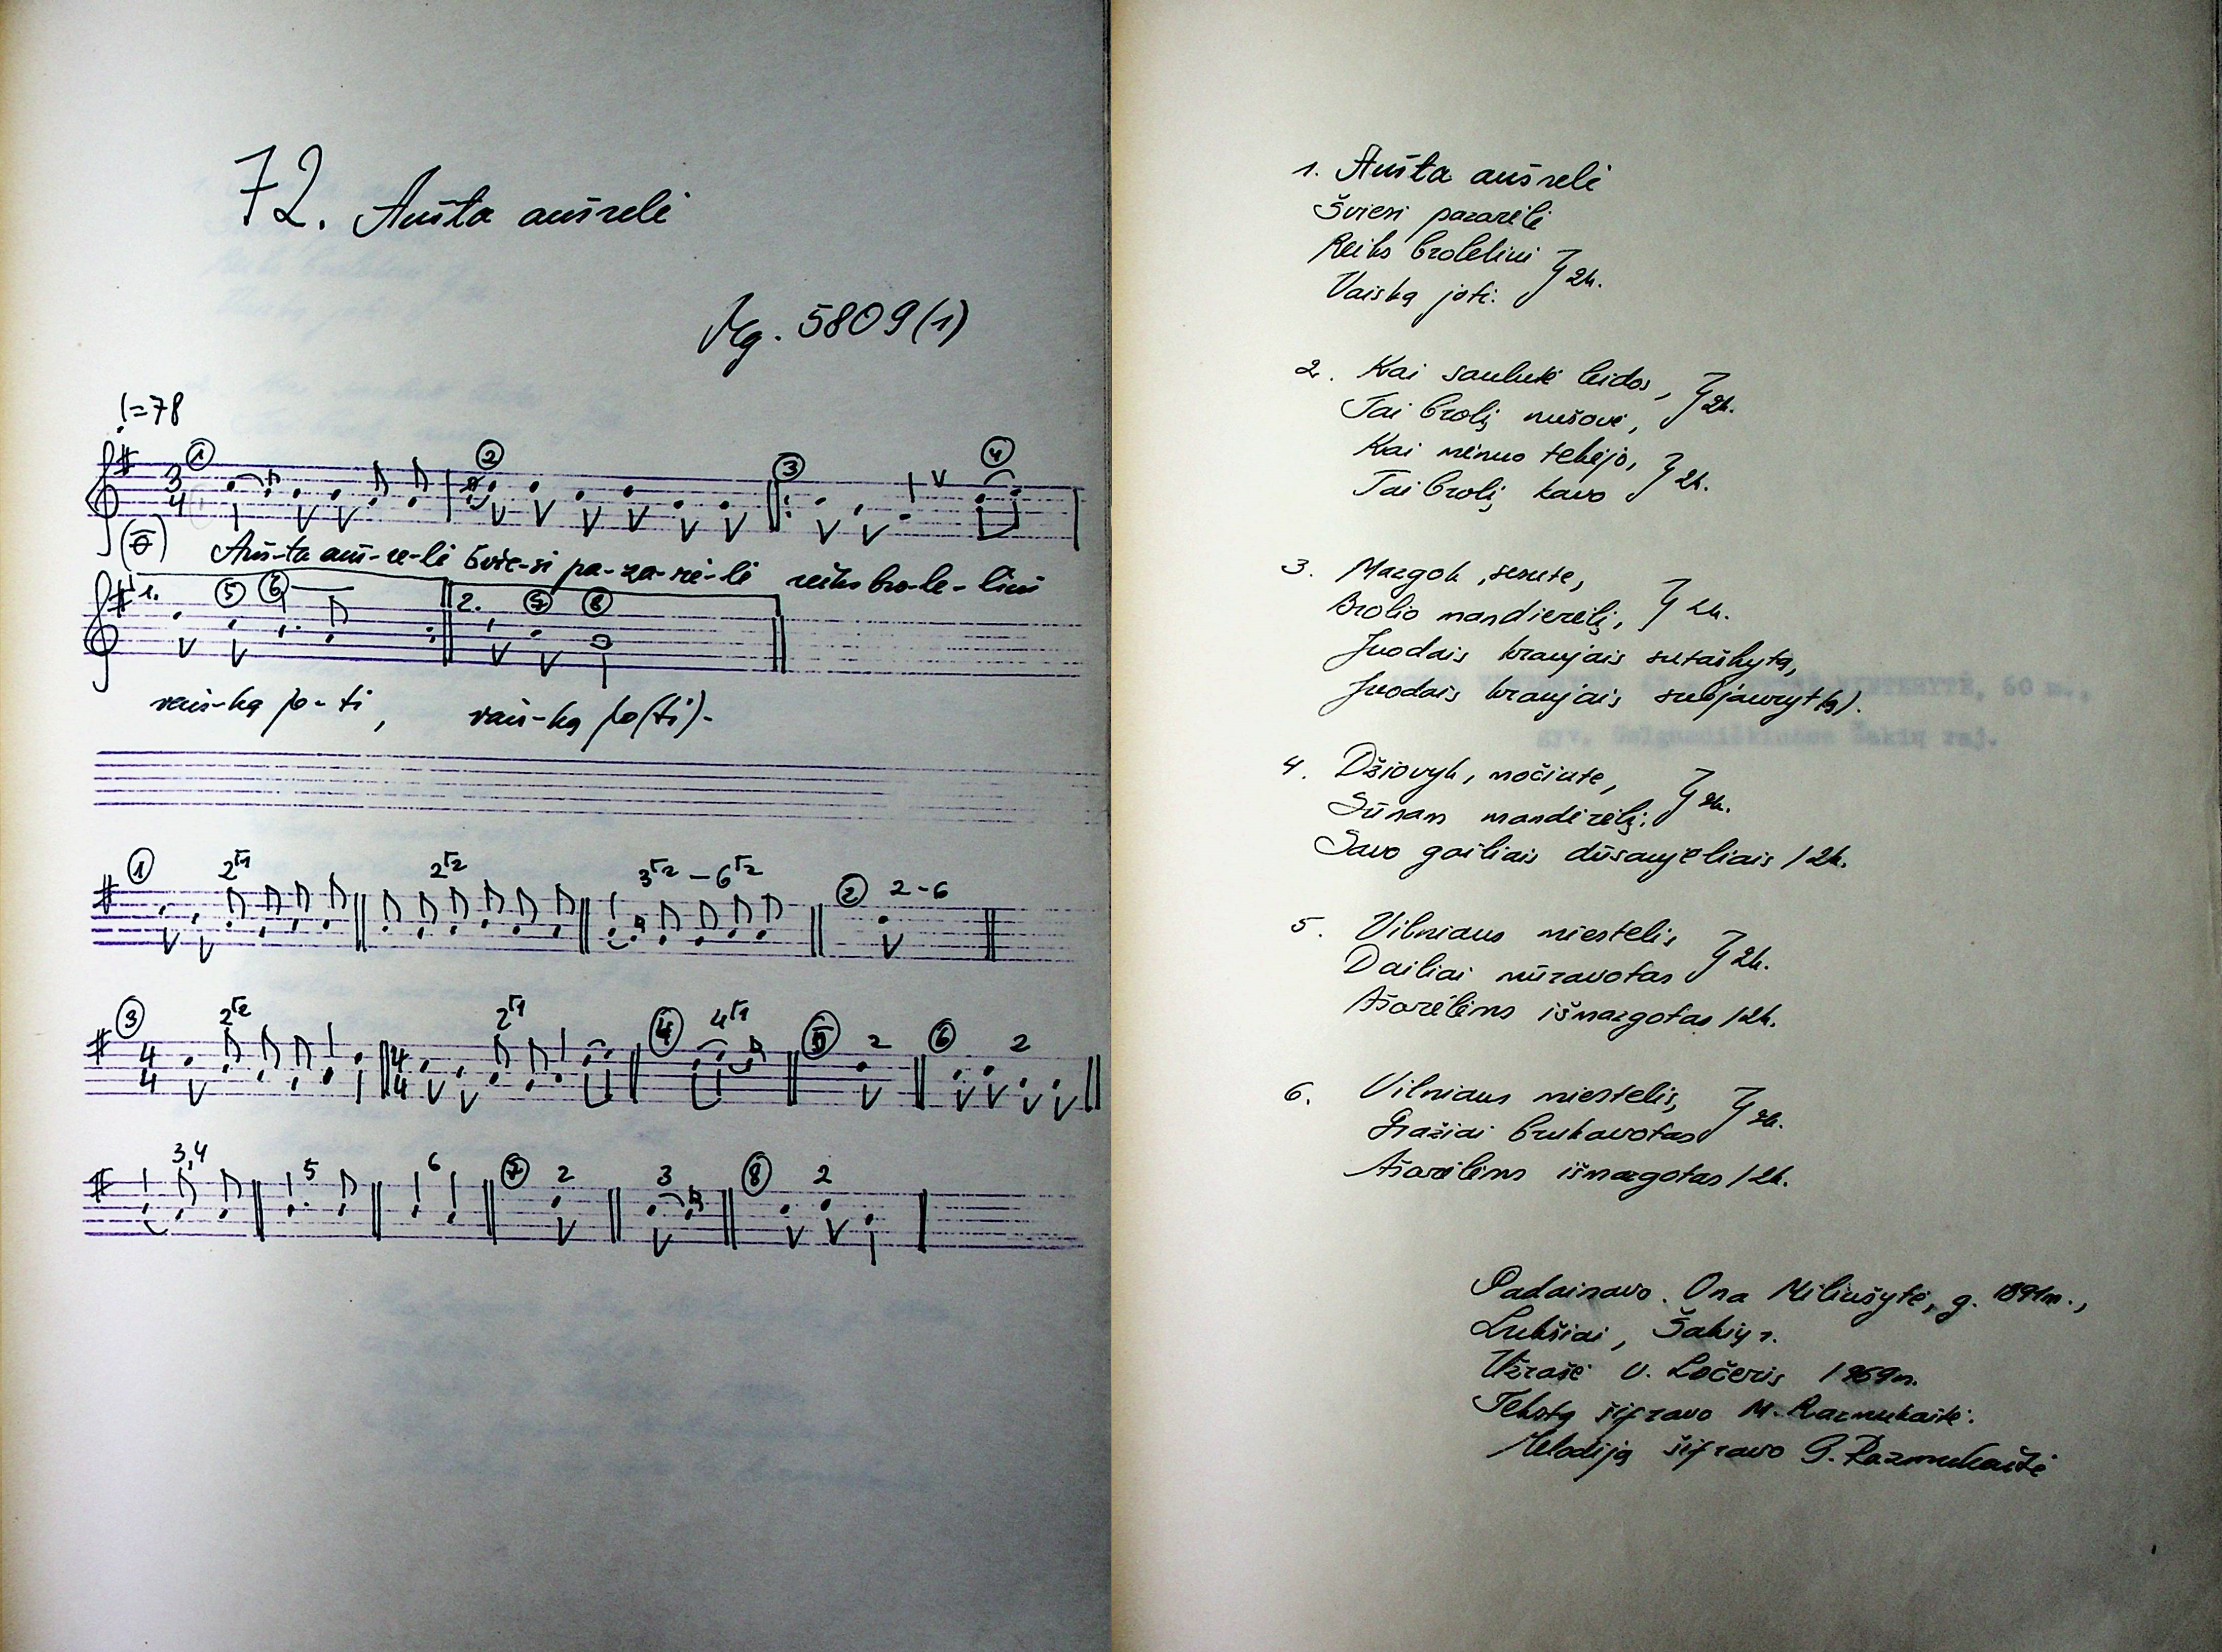 72. Aušta aušrelė
Mg. 5809(1)
♩=78
① ② ③ ④
3/4
Auš-ta auš-re-lė švie-si pa-za-rė-lė reiks bro-le-liui
1. ⑤ ⑥ 2. ⑦ ⑧
vais-ką jo-ti, vais-ką jo(ti).
① 2 1 2 2 3 2 – 6 2 ② 2-6
③ 4/4 2 2 4/4 2 1 ④ 4 1 ⑤ 2 ⑥ 2
3,4 5 6 ⑦ 2 3 ⑧ 2
1. Aušta aušrelė
Šviesi pazarėlė
Reiks broleliui
Vaiską joti. } 2k.
2. Kai saulutė leidos,
Tai brolį nušovė, } 2k.
Kai mėnuo tekėjo,
Tai brolį kavo } 2k.
3. Mazgok, sesute,
Brolio mandierėlį, } 2k.
Juodais kraujais sutaškytą,
Juodais kraujais subjauryt(ą).
4. Džiovyk, močiute,
Sūnam mandierėlį, } 2k.
Savo gailiais dūsaujėliais / 2k.
5. Vilniaus miestelis
Dailiai mūravotas } 2k.
Ašarėlėms išmargotas / 2k.
6. Vilniaus miestelis,
Gražiai brukavotas } 2k.
Ašarėlėms išmargotas / 2k.
Padainavo Ona Miliušytė, g. 1891m.,
Lukšiai, Šakių r.
Užrašė V. Ločeris 1969m.
Tekstą šifravo M. Razmukaitė.
Melodiją šifravo G. Razmukaitė